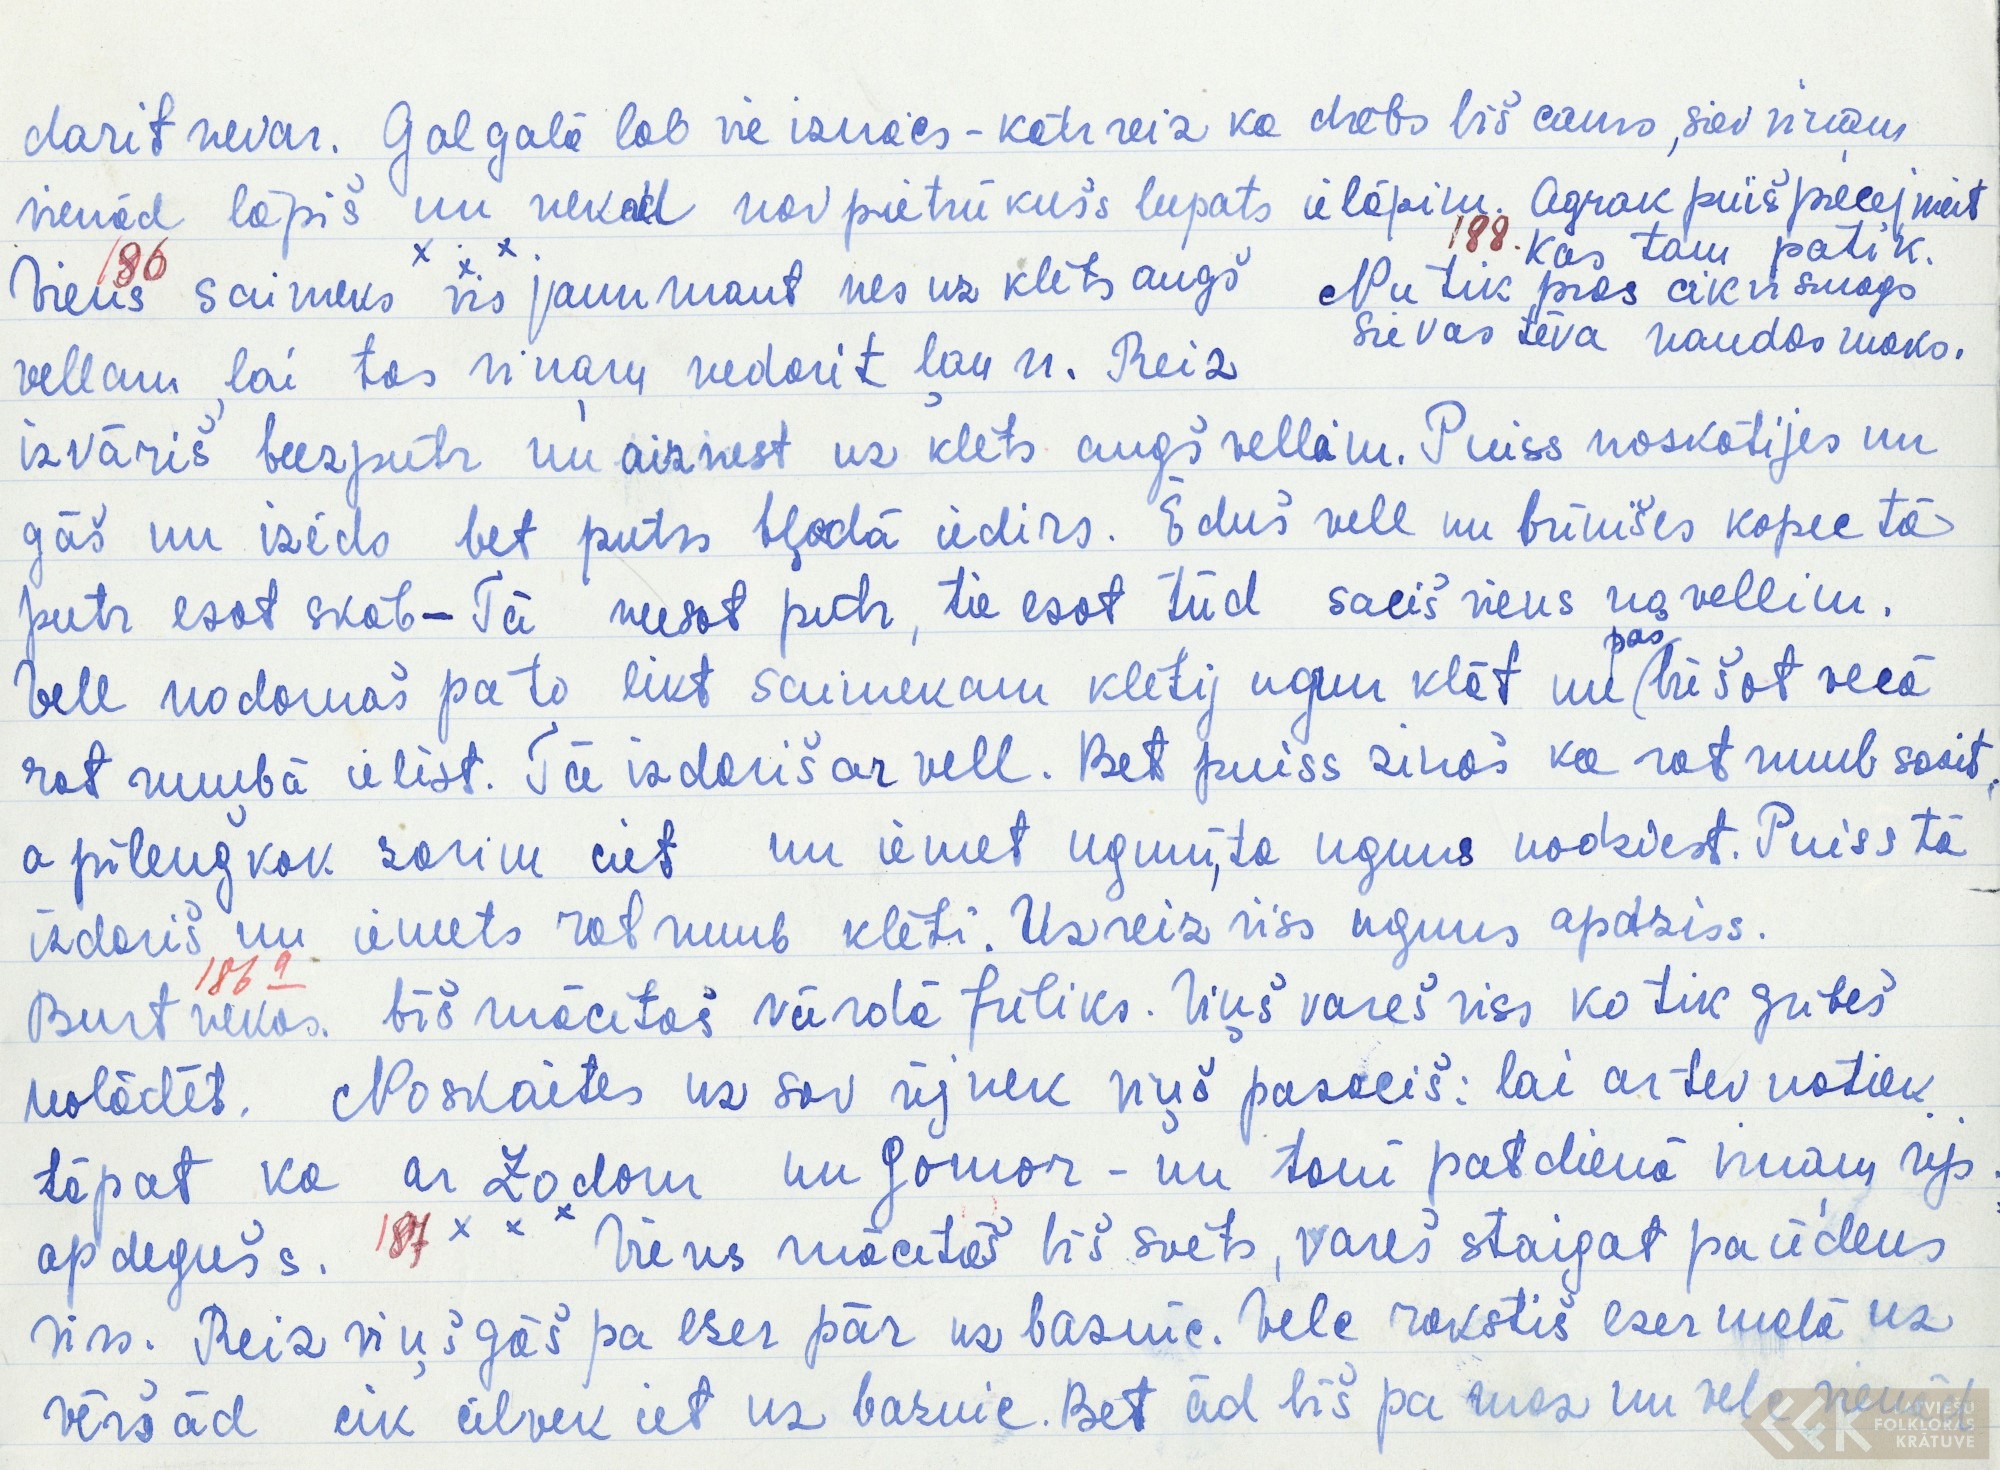 darit nevar. Gal galā lab vie iznācs - katr reiz ka drēbs biš caurs, siev viņam
vienād lāpiš un nekad nav pietrūkušs lupats ielāpim. Agrak puiš precej meit
188. kas tam patik.
186 x x x
Viens saimeks vis jaunu maut nes uz klēts augš Nu tik pras cik ir smags
sievas tēva naudas maks.
vellam, lai tas viņam nedarit ļaun. Reiz
izvāriš biezputr un aiznest uz klēts augš vellam. Puiss noskatijes un
gāš un izēds bet putrs bļodā iedirs. Ēduš vell un brinišes kopec tā
putr esot skāb - Tā neesot putr, tie esot tūd saciš viens no vellim.
Vell nodomaš pa to likt saimekam klētij ugun klāt un pas (būšot vecā
rat rumbā ielist. Tā izdariš ar vell. Bet puiss zinoš ka rat rumb sasit
a pilengžkok zarim ciet un iemet uguni, ta uguns nodziest. Puiss tā
izdariš un iemets rat rumb klēti. Uzreiz viss uguns apdziss.
186 a
Burtnekos. biš mācitaš vārdā Füliks. Viņš vareš viss ko tik gribeš
nolādēt. Noskaites uz sav rijnek viņš pasaciš: lai ar tev notiek
tāpat ka ar Zodom un Gomor - un tani pat dienā viņam rij
apdegušs. 187 x x x Viens mācitaš biš svēts, vareš staigat pa ūdens
virs. Reiz viņš gāš pa ezer pār uz baznic. Vele rakstiš ezer malā uz
vērš ād cik cilvek iet uz baznic. Bet ād biš pa maz un vele vienād
LATVIEŠU
FOLKLORAS
KRĀTUVE